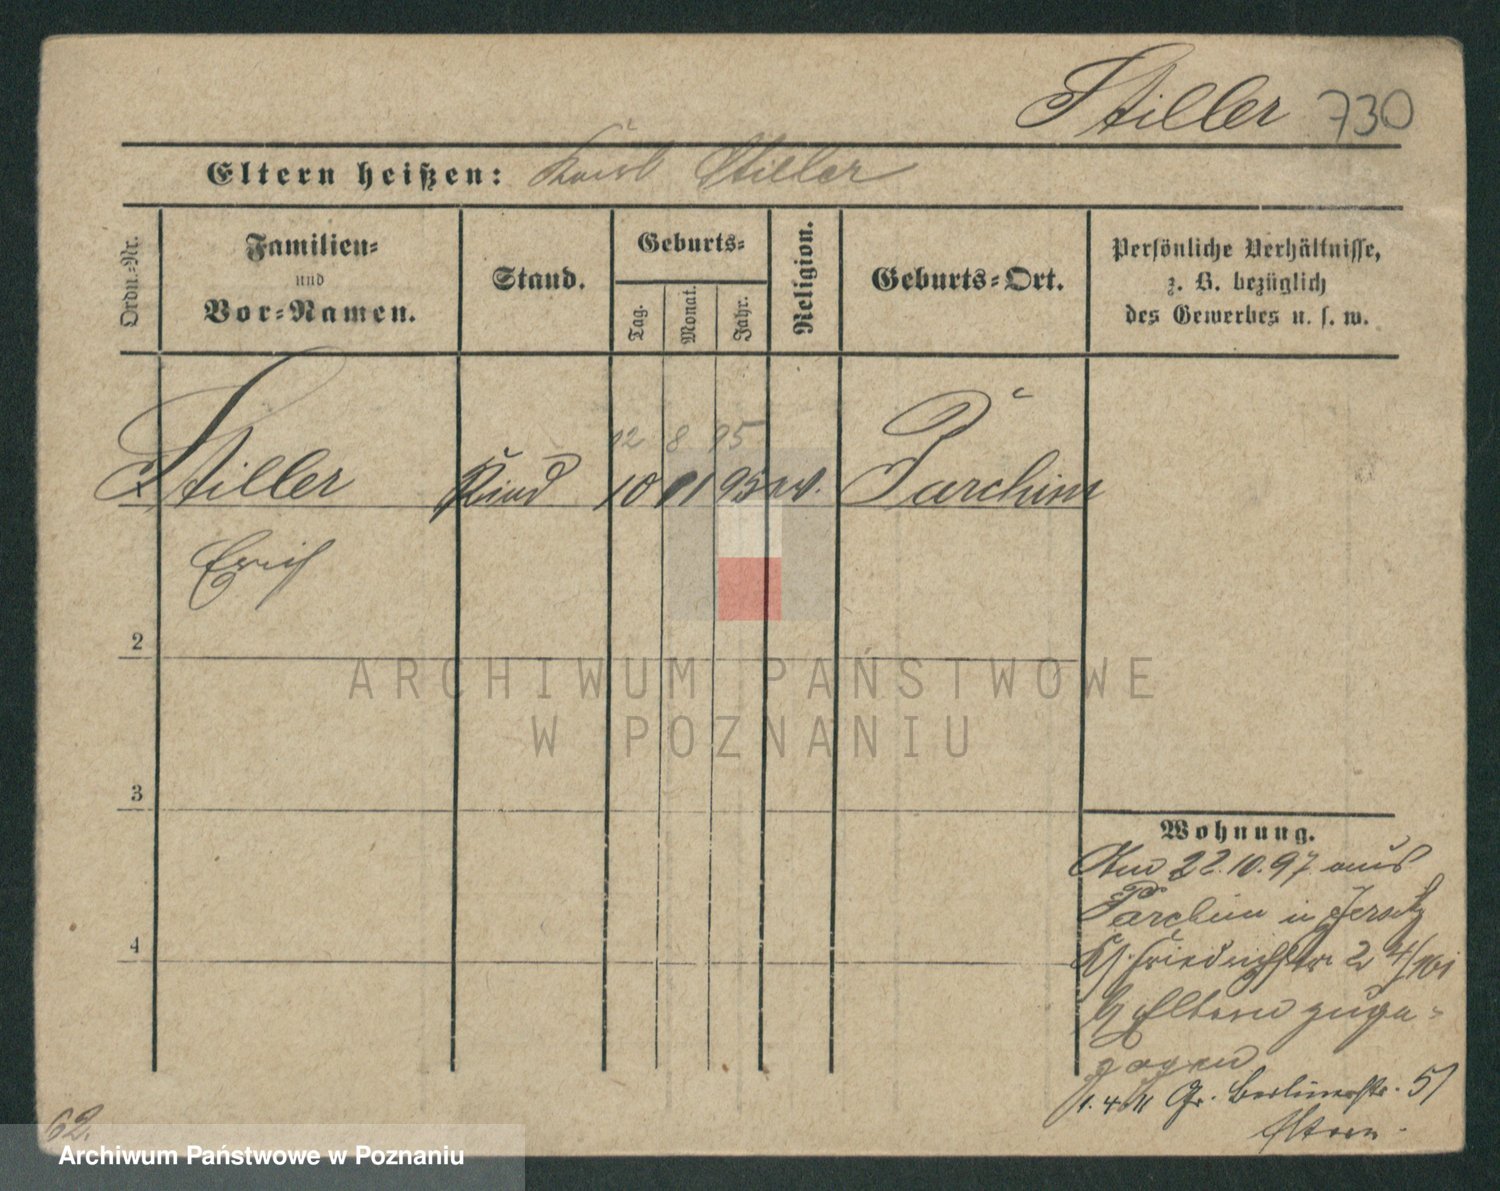 Stiller 730
Eltern heißen: Stiller
Ordn.=Nr.
Familien=
und
Vor=Namen.
Stand.
Geburts=
Tag.
Monat.
Jahr.
Religion.
Geburts=Ort.
Persönliche Verhältnisse,
z. B. bezüglich
des Gewerbes u. s. w.
12 8 95
Stiller Kind 10 11 95 ev. Parchim
Erich
2
3
4
Wohnung.
Am 22.10.97 aus
Parchim in Jersitz
Friedrichstr. 24
Eltern zuge=
zogen
1.4.11 Gr. Berlinerstr. 51
Eltern.
62.
ARCHIWUM PAŃSTWOWE
W POZNANIU
Archiwum Państwowe w Poznaniu